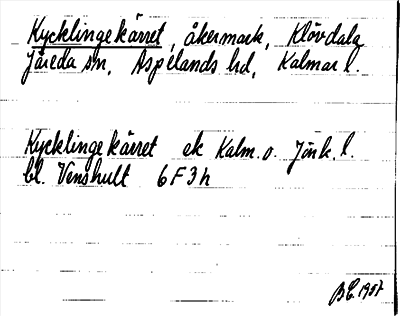 Kycklingekärret, åkermark, Klövdala
Järeda sn, Aspelands hd, Kalmar l.
Kycklingekärret ek Kalm. o. Jönk. l.
bl. Venshult 6F3h
BE. 1957